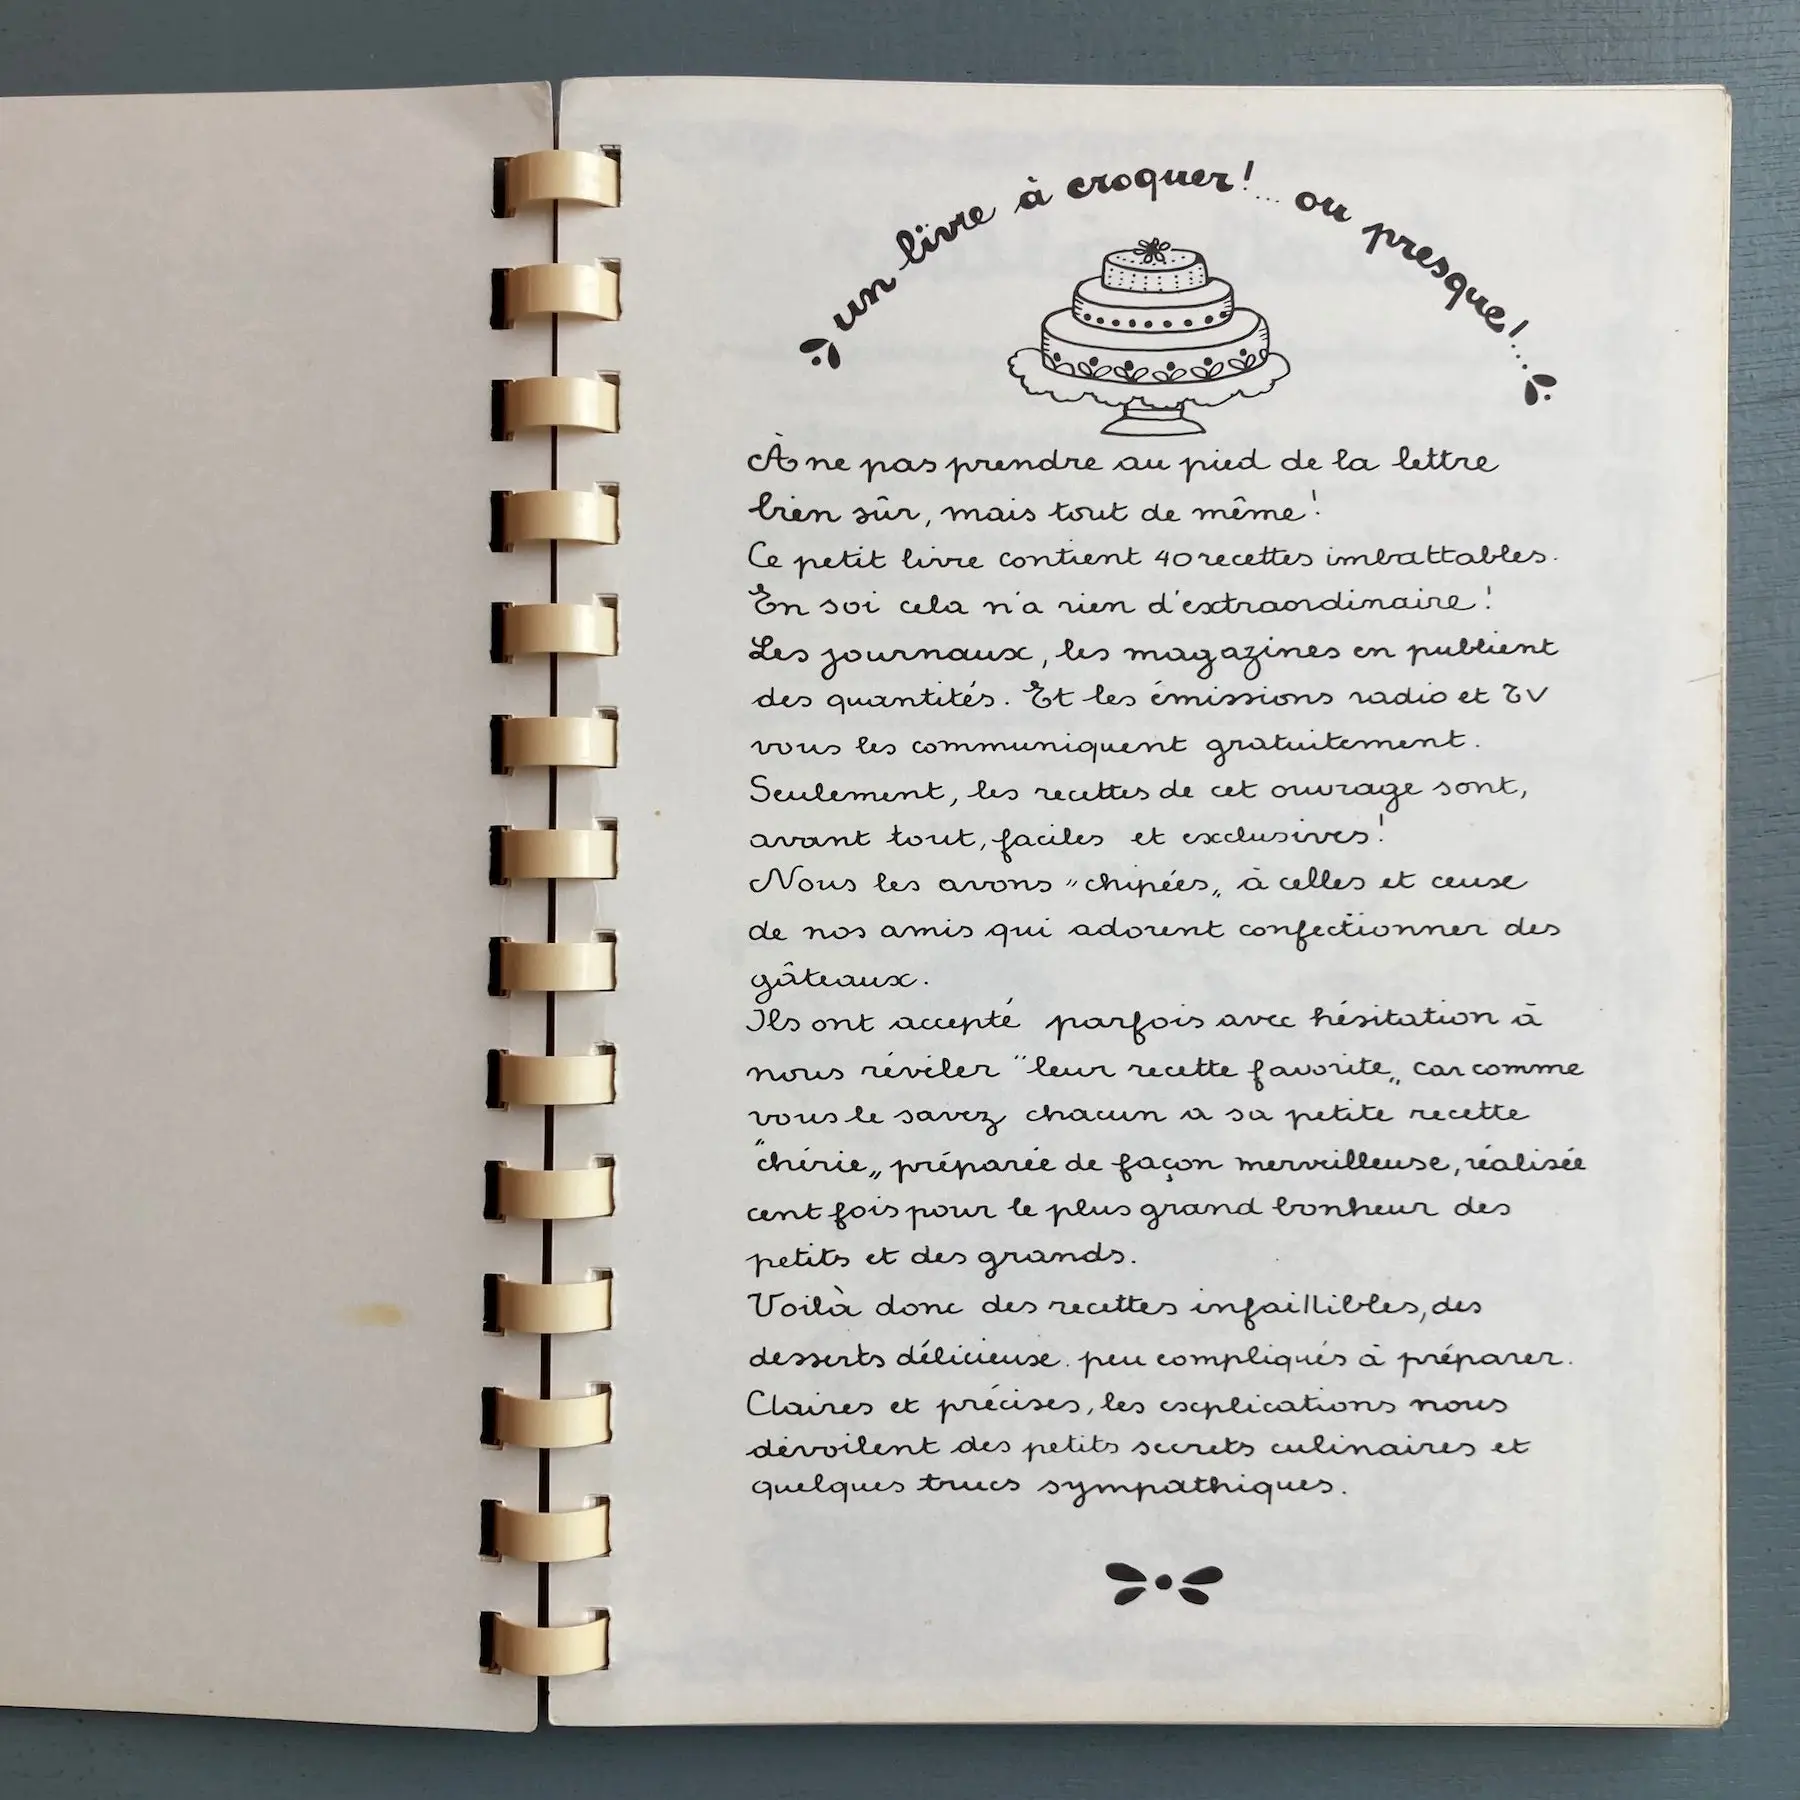 un livre à croquer!... ou presque!...
À ne pas prendre au pied de la lettre
bien sûr, mais tout de même!
Ce petit livre contient 40 recettes imbattables.
En soi cela n'a rien d'extraordinaire!
Les journaux, les magazines en publient
des quantités. Et les émissions radio et TV
vous les communiquent gratuitement.
Seulement, les recettes de cet ouvrage sont,
avant tout, faciles et exclusives!
Nous les avons "chipées„ à celles et ceux
de nos amis qui adorent confectionner des
gâteaux.
Ils ont accepté parfois avec hésitation à
nous révéler "leur recette favorite„ car comme
vous le savez chacun a sa petite recette
"chérie„ préparée de façon merveilleuse, réalisée
cent fois pour le plus grand bonheur des
petits et des grands.
Voilà donc des recettes infaillibles, des
desserts délicieux. peu compliqués à préparer.
Claires et précises, les explications nous
dévoilent des petits secrets culinaires et
quelques trucs sympathiques.